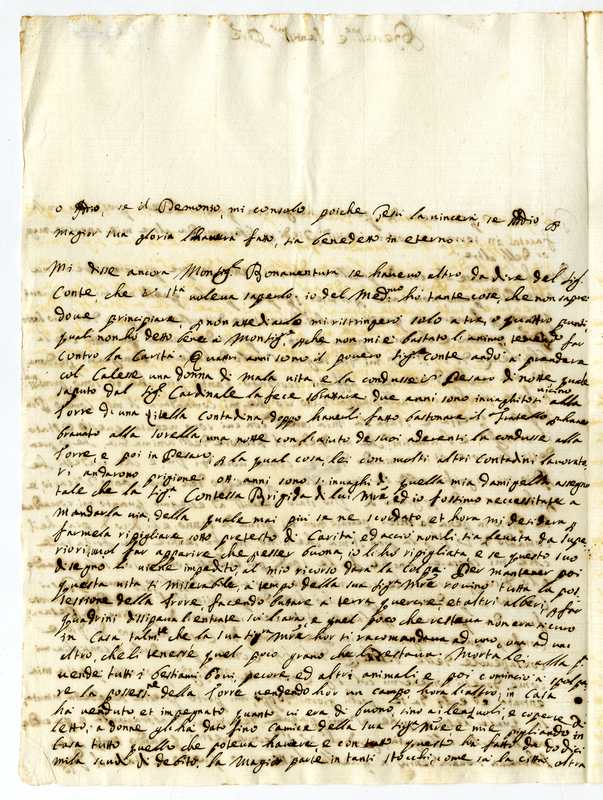 o Dio, se il Demonio, mi consolo poiche Iesu la vincerà, se Iddio p
magior sua gloria l'haverà fatto, sia benedetto in eterno
Mi disse ancora Monsig.r Bonaventura se havevo altro da dire del sig.r
Conte, che V. S.ta voleva saperlo. io del Med.mo hò tante cose, che non saprei
dove principiare, p non attediarla mi ristringerò solo a tre, o quattro punti,
quali non hò detto bene à Monsig.re p che non mi è bastato l'animo, temendo far
contro la Carità. Quattri anni sono il povero sig.r Conte andò à prendere
col Calese una donna di mala vita, e la condusse à Pesaro di notte quale
saputo dal sig.r Cardinale la fece sfrattare due anni sono invaghitosi vicino alla
Torre di una Zitella Contadina, doppo haverli fatto bastonare il fratello p haver
bravato alla sorella, una notte con l'aiuto de suoi aderenti la condusse alla
Torre, e poi in Pesaro, p la qual cosa, lei con molti altri Contadini lavorato
ri andarono prigione. ott. anni sono si invaghì di quella mia damigella a segno
tale che la sig.ra Contessa Brigida di lui M.re ed io fossimo neccessitate a
mandarla via, della quale mai più se ne scordato, et hora mi desidera p
farmela ripigliare sotto pretesto di Carità, ed acciò non li sia levata da supe
riori, vuol far apparire che p esser buona, io li hò ripigliata e se questo suo
disegno li viene impedito, al mio ricorso darà la colpa. Per mantener poi
questa vita sì miserabile, a tempo della sua sig.ra M.re rovinò tutta la pos
sessione della Torre facendo buttare à terra quercie, et altri alberi p far
quadrini dissipava l'entrate, e quel poco che restava non era sicuro
in Casa talm.te che la sua sig.ra M.re hor si racomandava ad uno, ora ad un
altro che li tenesse quel poco grano che li restava. Morta lei, alla p.a
vende tutti i bestiami bovi, pecore, ed altri animali e poi cominciò à spolpa
re la possess.e della Torre vendendo hor un campo, hora l'altro; in Casa
ha venduto et impegnato quanto vi era di buono, sino ai lenzuoli, e coperte di
letto; a donne gl'hà dato sino camice della sua sig.ra M.re e mie, pigliando in
Casa tutto quello che poteva havere, e con tutto questo hà fatto da dodici
mila scudi di debito. la Magior parte in tanti stocchi, come sà la città, oltra